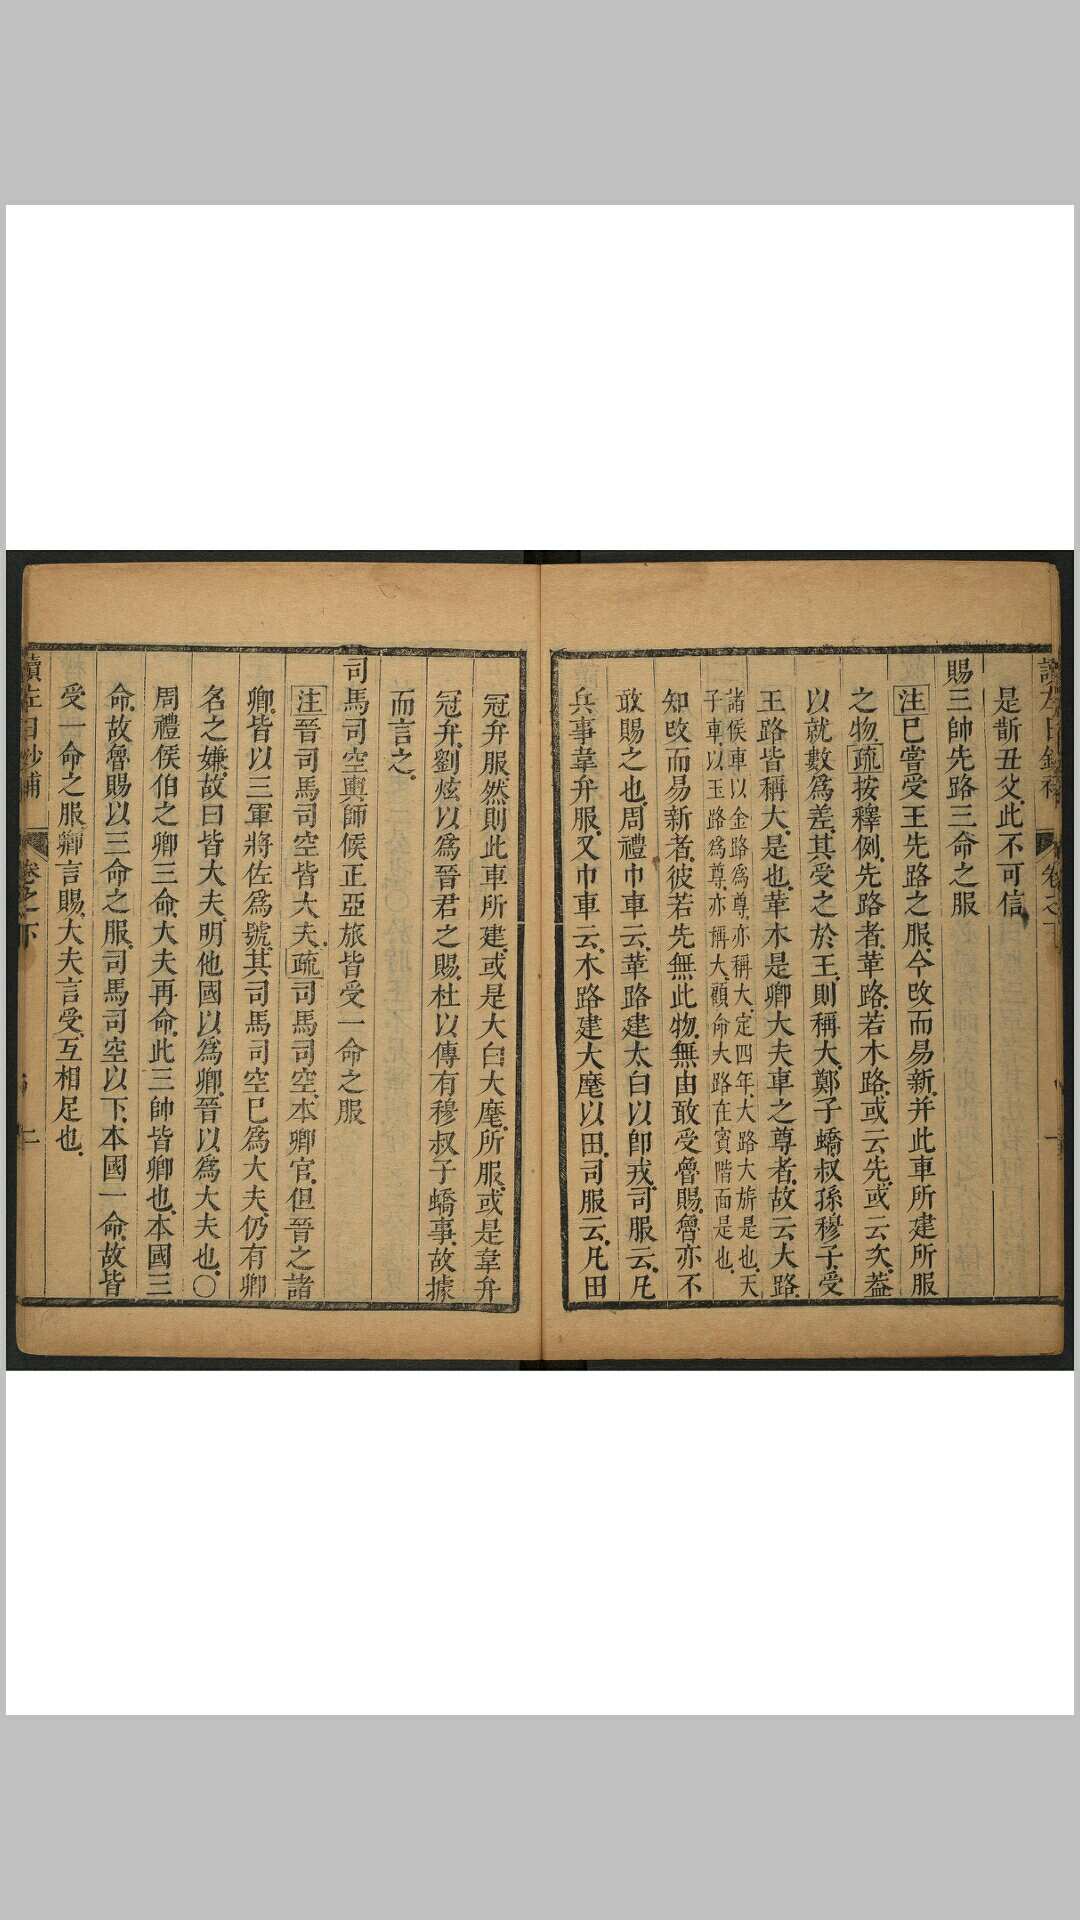 是斮丑父此不可信
賜三帥先路三命之服
注巳嘗受王先路之服今改而易新并此車所建所服
之物疏按釋例先路者革路若木路或云先或云次葢
以就數爲差其受之於王則稱大鄭子蟜叔孫穆子受
王路皆稱大是也革木是卿大夫車之尊者故云大路
諸侯車以金路爲尊亦稱大定四年大路大旂是也天
子車以玉路爲尊亦稱大顧命大路在賓階面是也
知改而易新者彼若先無此物無由敢受魯賜魯亦不
敢賜之也周禮巾車云革路建太白以卽戎司服云凡
兵事韋弁服又巾車云木路建大麾以田司服云凡田
冠弁服然則此車所建或是大白大麾所服或是韋弁
冠弁劉炫以爲晉君之賜杜以傳有穆叔子蟜事故據
而言之
司馬司空輿師候正亞旅皆受一命之服
注晉司馬司空皆大夫疏司馬司空本卿官但晉之諸
卿皆以三軍將佐爲號其司馬司空巳爲大夫仍有卿
名之嫌故曰皆大夫明他國以爲卿晉以爲大夫也〇
周禮侯伯之卿三命大夫再命此三帥皆卿也本國三
命故魯賜以三命之服司馬司空以下本國一命故皆
受一命之服卿言賜大夫言受互相足也
讀左日鈔補 卷之下 二